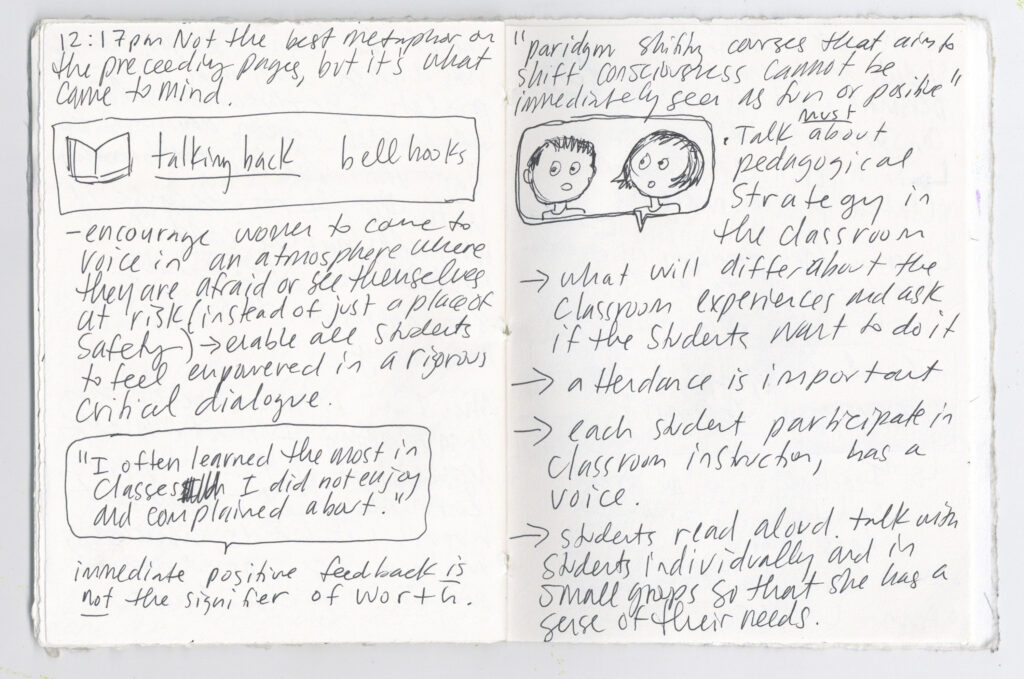 12:17pm Not the best metaphor on
the preceeding pages, but it's what
came to mind.
talking back bell hooks
-encourage women to come to
voice in an atmosphere where
they are afraid or see themselves
at risk (instead of just a place of
safety) → enable all students
to feel empowered in a rigorous
critical dialogue.
"I often learned the most in
classes I did not enjoy
and complained about."
immediate positive feedback is
not the signifier of worth.
"paridgm shifting courses that aim to
shift consciousness cannot be
immediately seen as fun or positive"
must
• Talk about
pedagogical
strategy in
the classroom
→ what will differ about the
classroom experiences and ask
if the students want to do it
→ attendance is important
→ each student participate in
classroom instruction, has a
voice.
→ students read aloud. talk with
students individually and in
small groups so that she has a
sense of their needs.